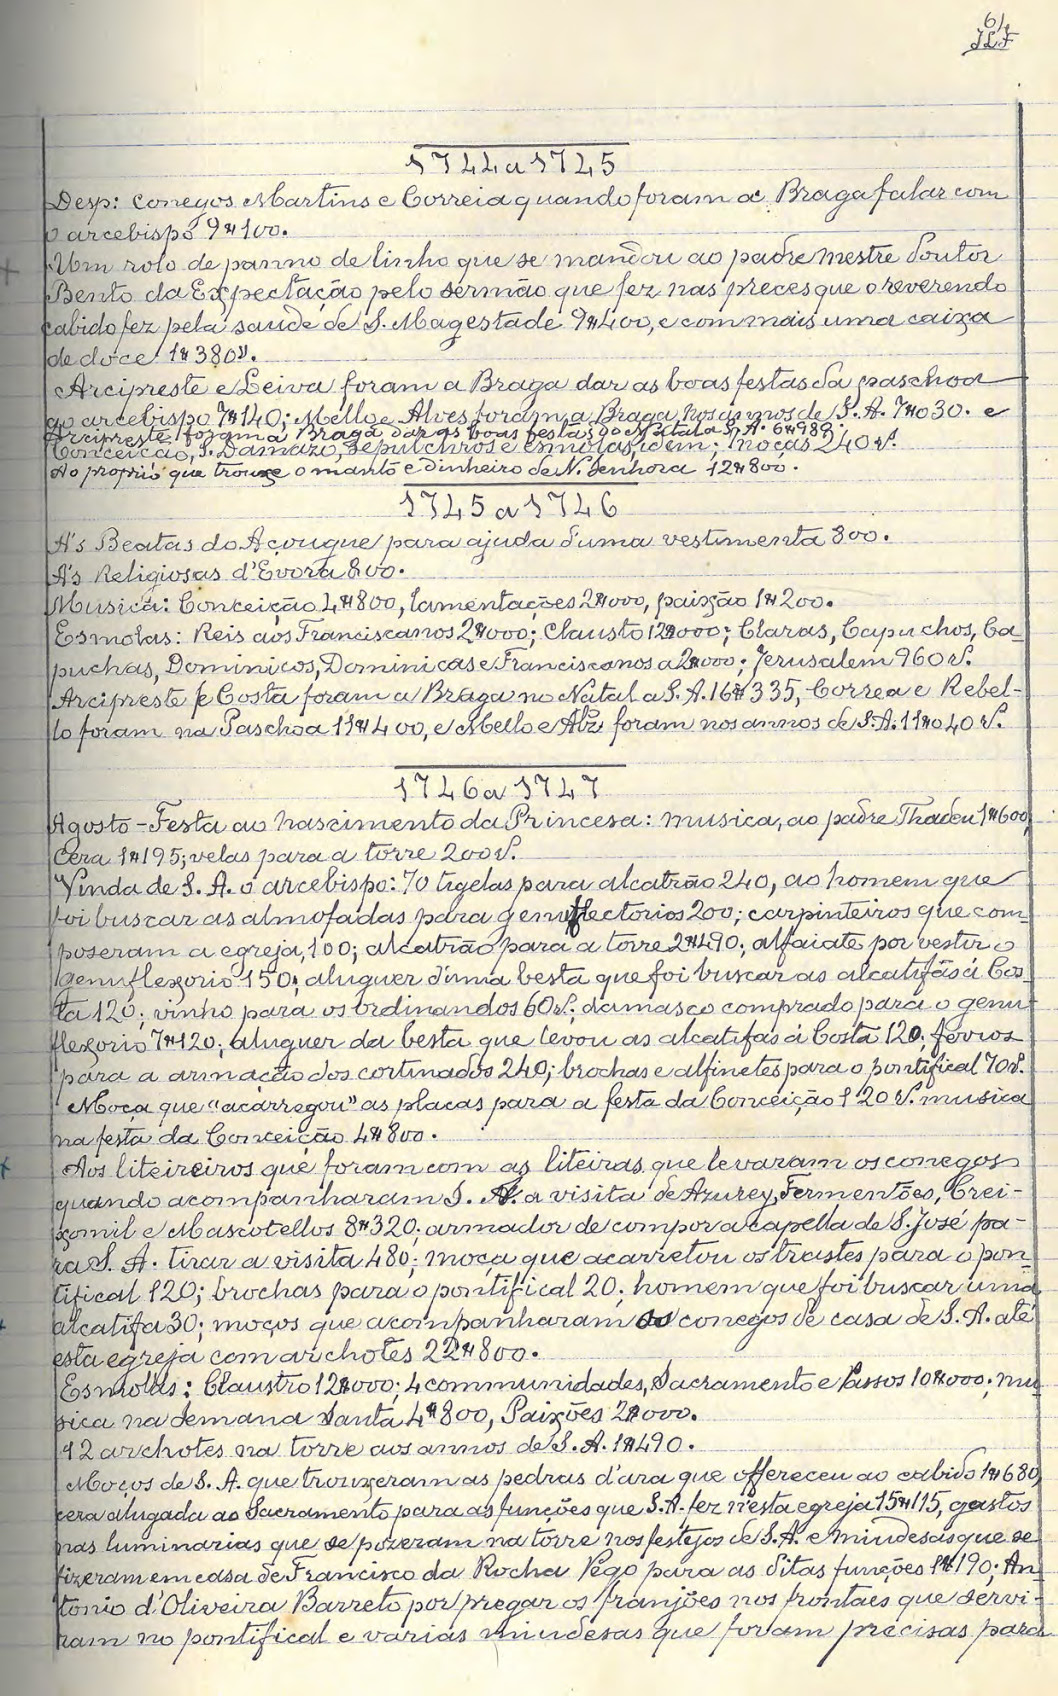 64
JLF
1744 a 1745
Desp: conegos Martins e Correia quando foram a Braga falar com
o arcebispo 9#100.
Um rolo de panno de linho que se mandou ao padre mestre doutor
Bento da Expectação pelo sermão que fez nas preces que o reverendo
cabido fez pela saude de S. Magestade 9#400, e com mais uma caixa
de doce 1#380rs.
Arcipreste e Leiva foram a Braga dar as boas festas da paschoa
ao arcebispo 7#140; Mello e Alves foram a Braga nos annos de S. A. 7#030. e
Arcipreste foram a Braga dar as boas festas do Natal a S. A. 6#989.
Conceição, S. Damazo, sepulchros e esmolas, idem; moças 240 rs.
Ao proprio que trouxe o manto e dinheiro de N. Senhora 12#800.
1745 a 1746
A's Beatas do Açougue para ajuda d'uma vestimenta 800.
A's Religiosas d'Evora 800.
Musica: Conceição 4#800, lamentações 2#000, paixão 1#200.
Esmolas: Reis aos Franciscanos 2#000; Clausto 12#000; Claras, Capuchos, Ca-
puchas, Dominicos, Dominicas e Franciscanos a 2#000; Jerusalem 960 rs.
Arcipreste e Costa foram a Braga no Natal a S. A. 16#335, Correa e Rebel-
lo foram na Paschoa 11#400, e Mello e Alvz foram nos annos de S. A. 11#040 rs.
1746 a 1747
Agosto - Festa ao nascimento da Princesa: musica, ao padre Thadeu 1#600,
cera 1#195; velas para a torre 200 rs.
Vinda de S. A. o arcebispo: 70 tigelas para alcatrão 240, ao homem que
foi buscar as almofadas para genuflectorios 200; carpinteiros que com-
poseram a egreja, 100; alcatrão para a torre 2#490; alfaiate por vestir o
genuflexorio 150; aluguer d'uma besta que foi buscar as alcatifas á Cos-
ta 120; vinho para os ordinandos 60 rs.; damasco comprado para o genu-
flexorio 7#120; aluguer da besta que levou as alcatifas á Costa 120; ferros
para a armação dos cortinados 240; brochas e alfinetes para o pontifical 70 rs.
Moça que "acarregou" as placas para a festa da Conceição 120 rs. musica
na festa da Conceição 4#800.
Aos liteireiros que foram com as liteiras que levaram os conegos
quando acompanharam S. A. a visita de Azurey, Fermentões, Crei-
xomil e Mascotellos 8#320; armador de compor a capella de S. José pa-
ra S. A. tirar a visita 480; moça que acarretou os trastes para o pon-
tifical 120; brochas para o pontifical 20; homem que foi buscar uma
alcatifa 30; moços que acompanharam os conegos de casa de S. A. até
esta egreja com archotes 22#800.
Esmolas: Claustro 12#000; 4 communidades, Sacramento e Passos 10#000; mu-
sica na Semana Santa 4#800, Paixões 2#000.
12 archotes na torre aos annos de S. A. 1#490.
Moços de S. A. que trouxeram as pedras d'ara que offereceu ao cabido 1#680,
cera alugada ao Sacramento para as funções que S. A. fez n'esta egreja 15#115, gastos
nas luminarias que se pozeram na torre nos festejos de S. A. e miudesas que se
fizeram em casa de Francisco da Rocha Pego para as ditas funções 1#190; An-
tonio d'Oliveira Barreto por pregar os franjões nos frontaes que servi-
ram no pontifical e varias miudesas que foram precisas para